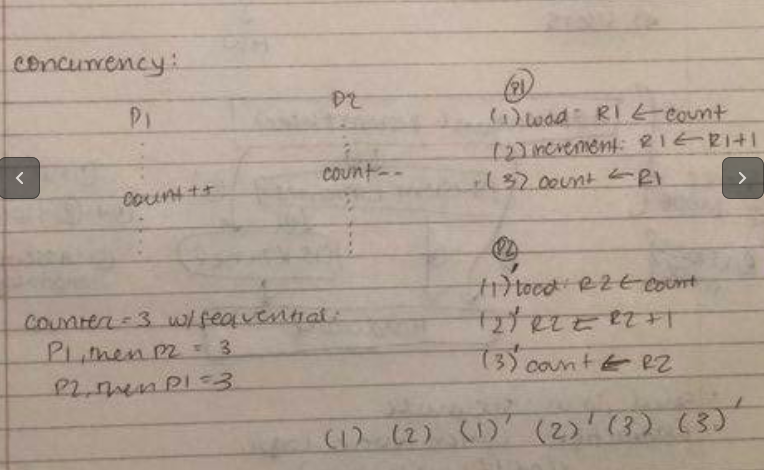 concurrency:
P1
count++
P2
count--
P1
(1) load: R1 ← count
(2) increment: R1 ← R1+1
(3) count ← R1
P2
(1)' load: R2 ← count
(2)' R2 ← R2+1
(3)' count ← R2
counter = 3 w/sequential:
P1, then P2 = 3
P2, then P1 = 3
(1) (2) (1)' (2)' (3) (3)'